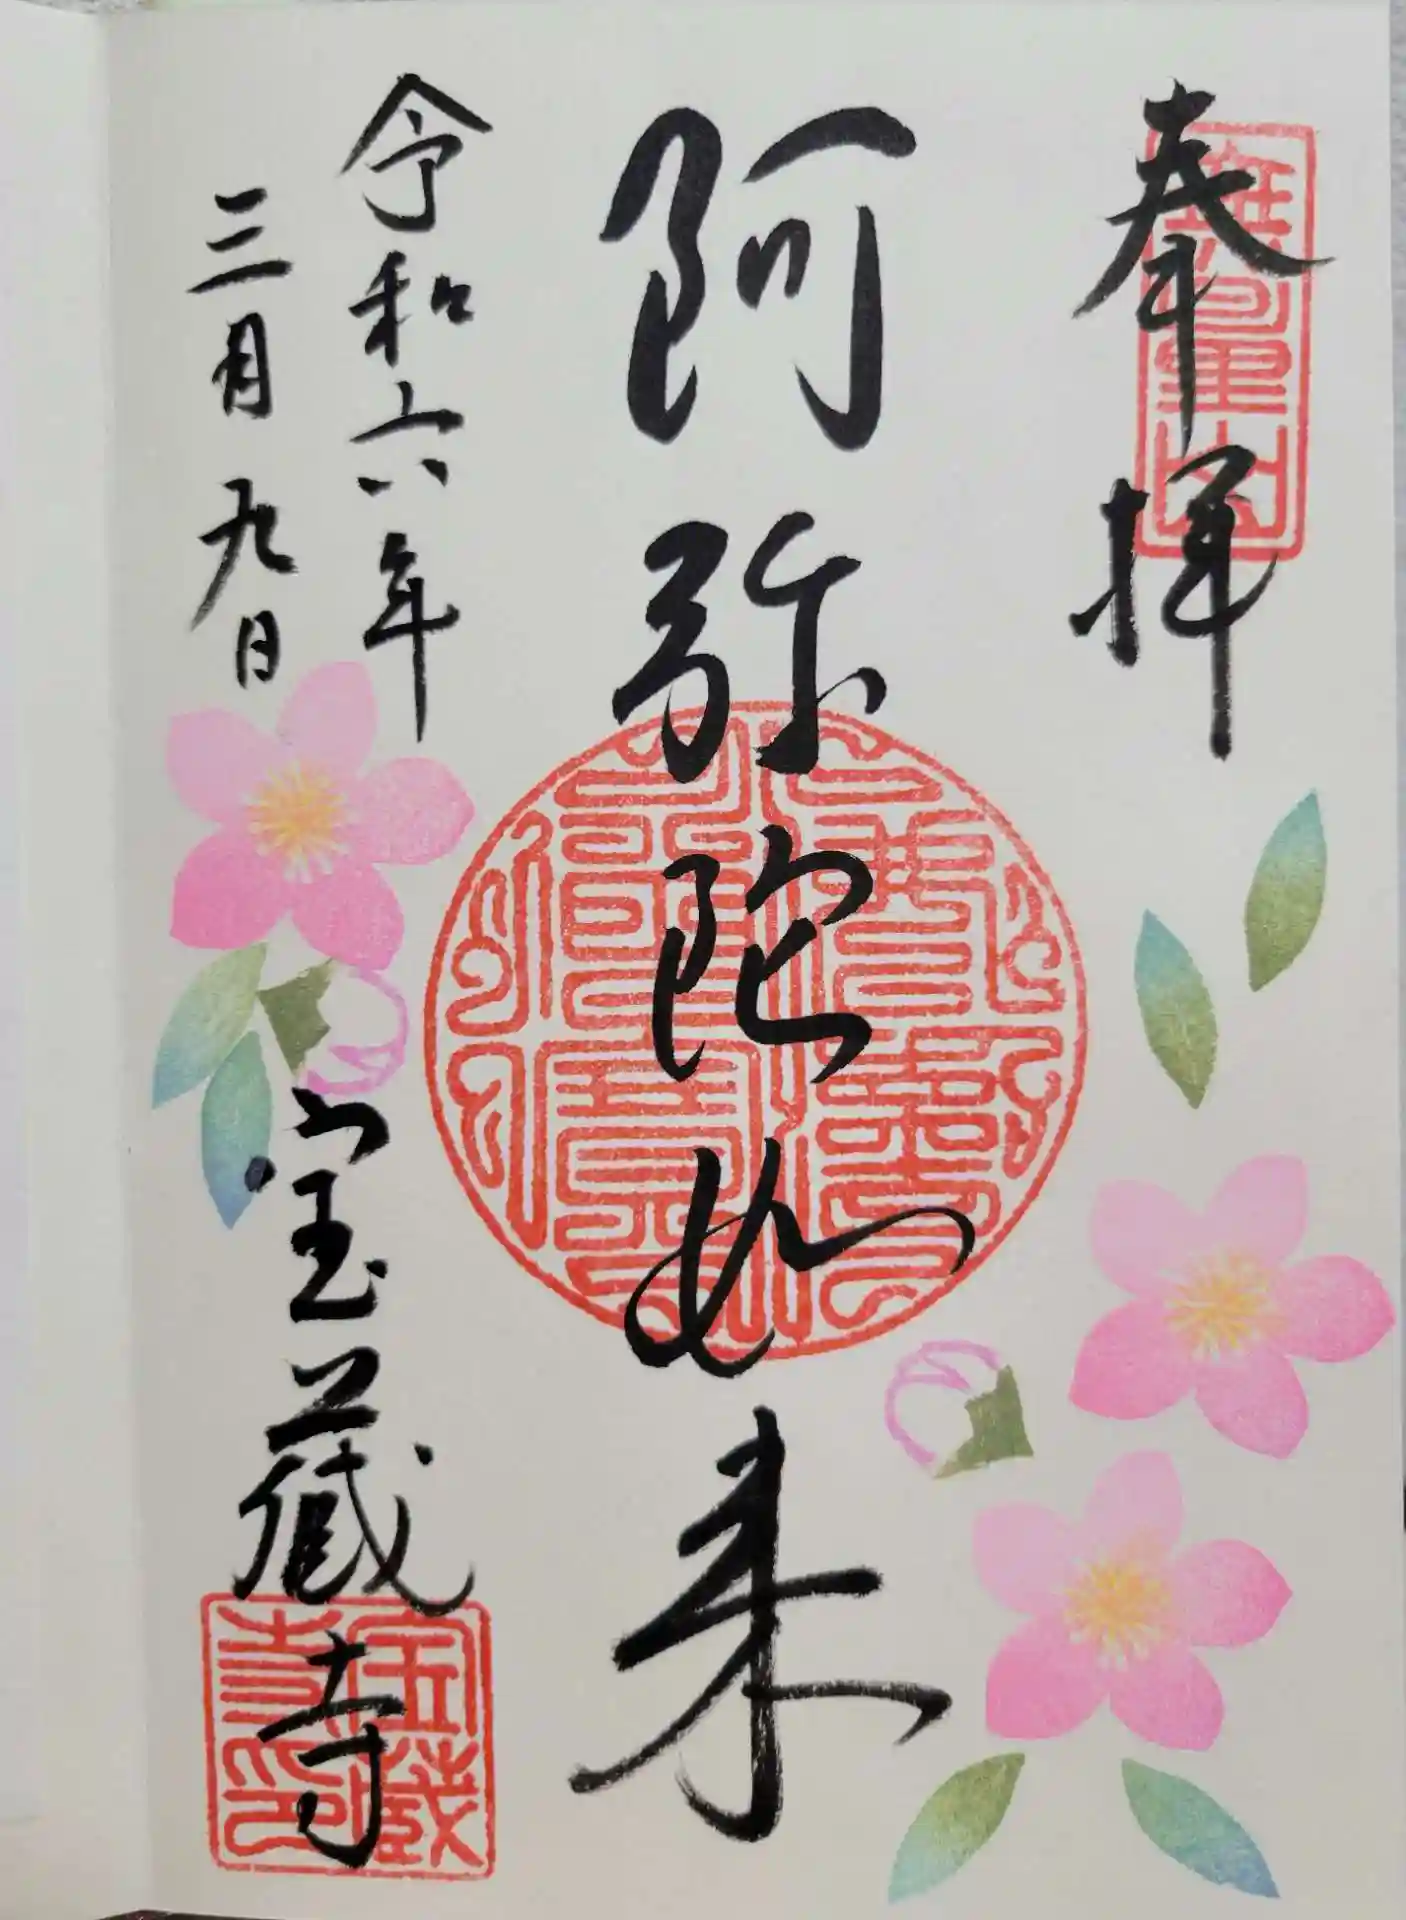 奉拝
無量山
阿弥陀如来
令和六年
三月九日
宝蔵寺
宝蔵寺印